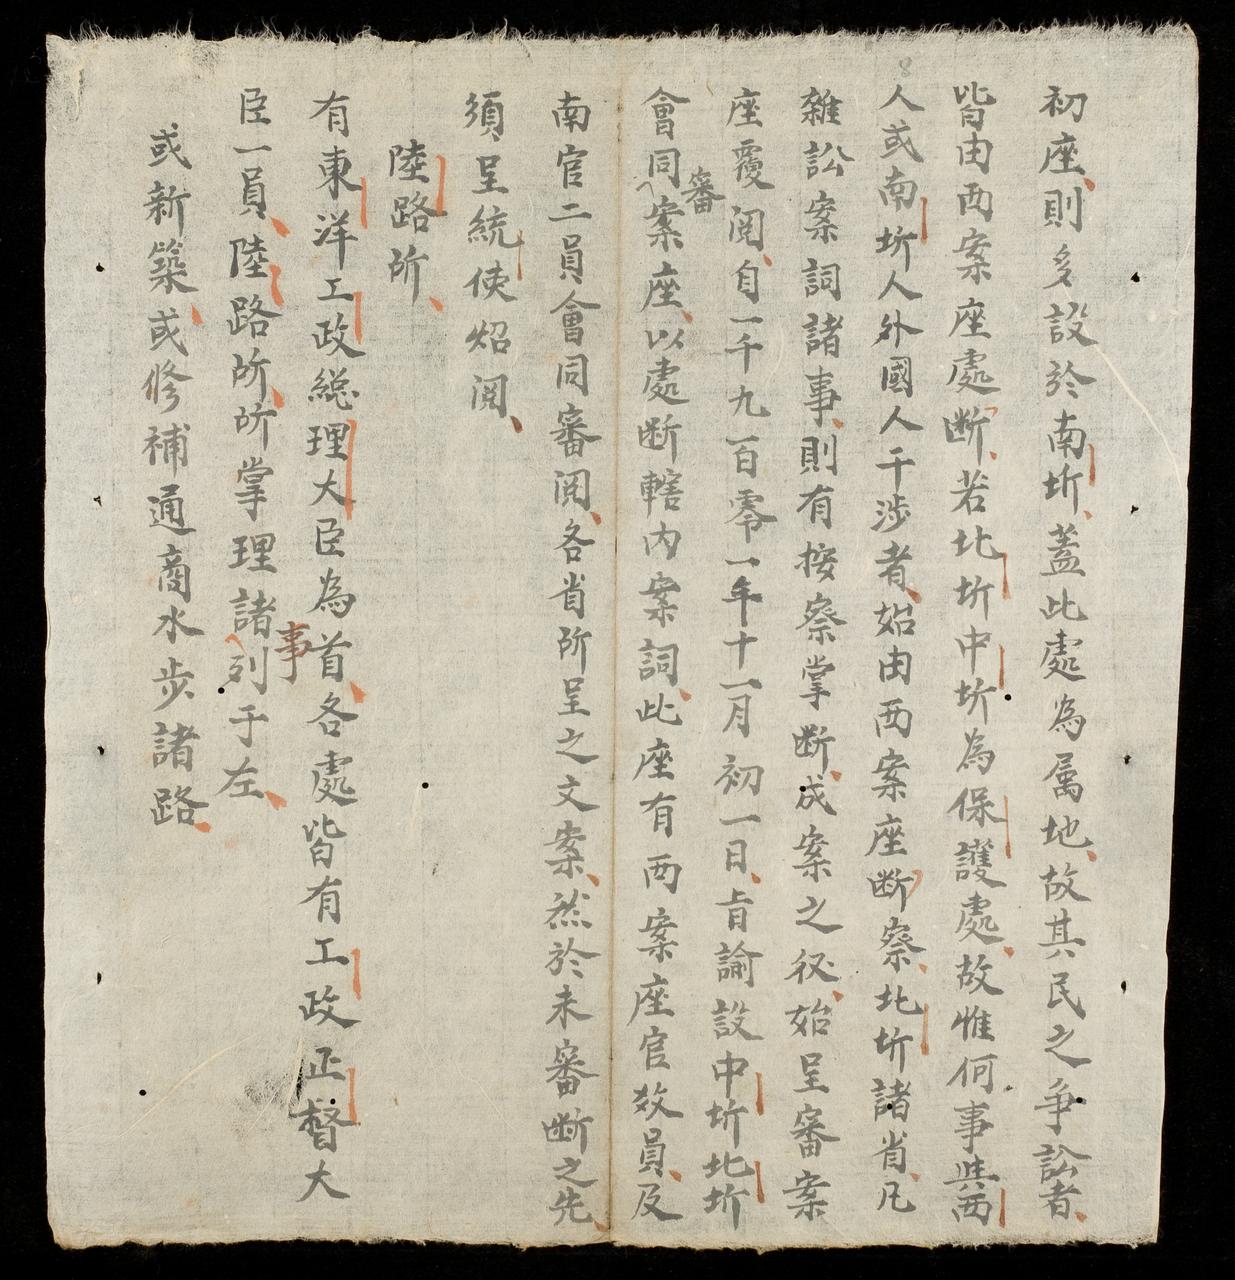 初座、則多設於南圻、蓋此處為属地、故其民之爭訟者、
皆由西案座處断、若北圻中圻為保護處、故惟何事與西
人或南圻人外國人干涉者、始由西案座断察、北圻諸省、凡
雜訟案詞諸事、則有按察掌断、成案之後、始呈審案
座覆閲、自一千九百零一年十一月初一日、旨諭設中圻北圻
會同審案座、以處断轄内案詞、此座有西案座官数員、及
南官二員會同審閲、各省所呈之文案、然於未審断之先、
須呈統使炤閲、
陸路所、
有東洋工政總理大臣為首、各處皆有工政正督大
臣一員、陸路所、所掌理諸事列于左、
或新築、或修補通商水步諸路、